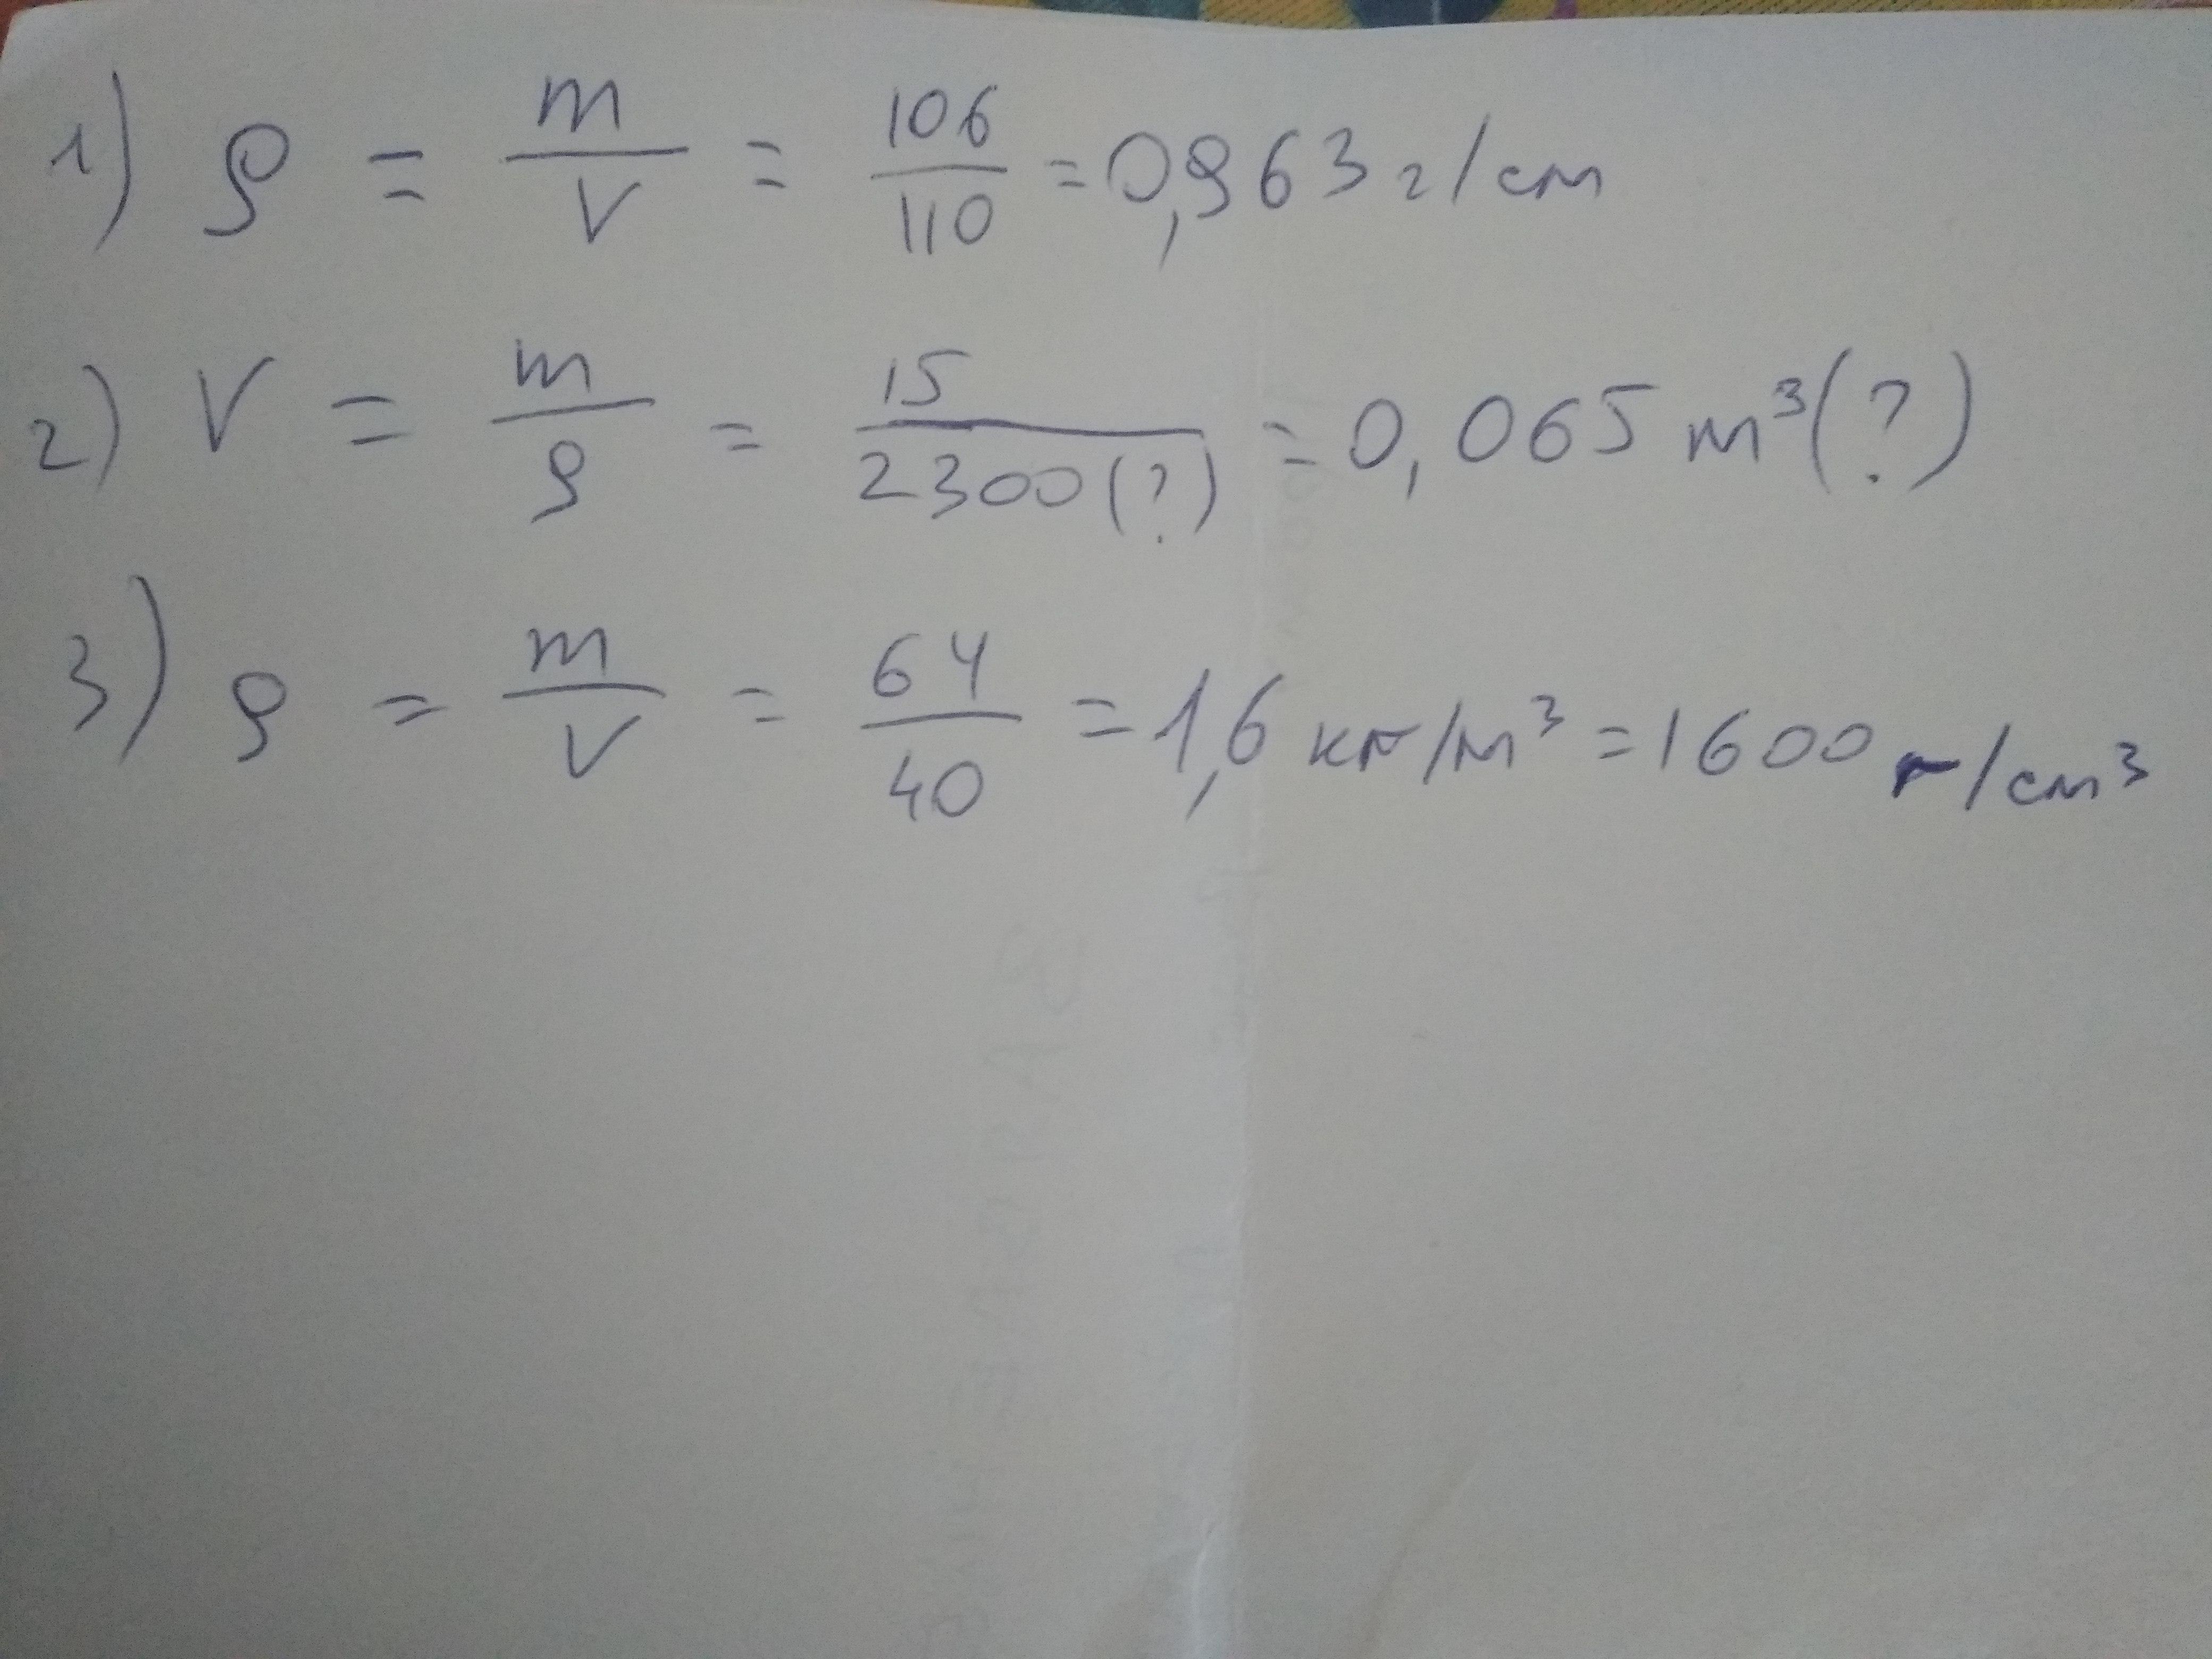 1) ρ = m/V = 106/110 = 0,963 г/см
2) V = m/ρ = 15/2300(?) = 0,065 м³(?)
3) ρ = m/V = 64/40 = 1,6 кг/м³ = 1600 г/см³